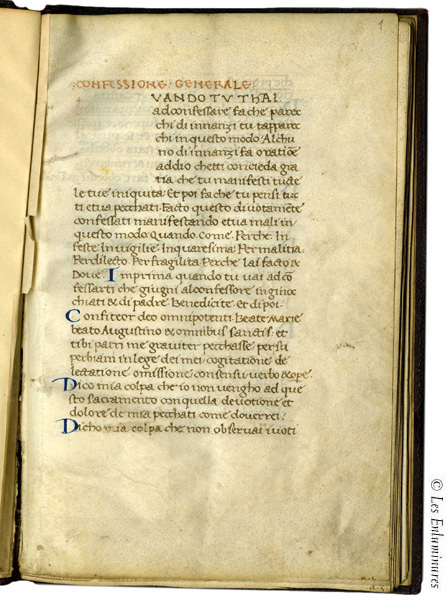 1
CONFESSIONE GENERALE.
VANDO TV THAI
ad confessare fa che parec
chi di innanzi tu tapparec
chi in questo modo. Alchu
no di innanzi fa oratione
addio chetti concieda gra
tia che tu manifesti tucte
le tue iniquita. Et poi fa che tu pensi tuc
ti etua pecchati. Facto questo divotamente
confessati manifestando etua mali in
questo modo. quando. Come. Perche. In
feste. In vigilie. In quaresima. Per malitia.
Per dilecto. Per fragilita. Perche lai facto &
Dove. Imprima quando tu vai ad co
fessarti che giugni al confessore inginoc
chiati & di padre. Benedicite. et di poi.
Confiteor deo omnipotenti. Beate Marie
beato Augustino & omnibus sanctis. et
tibi patri me graviter pecchasse per su
perbiam in lege dei mei cogitatione de
lectatione omissione consensu verbo & ope.
Dico mia colpa che io non vengho ad que
sto sacramento con quella devotione et
dolore de mia pecchati come doverrei.
Dicho mia colpa che non observai i voti
© Les Enluminures